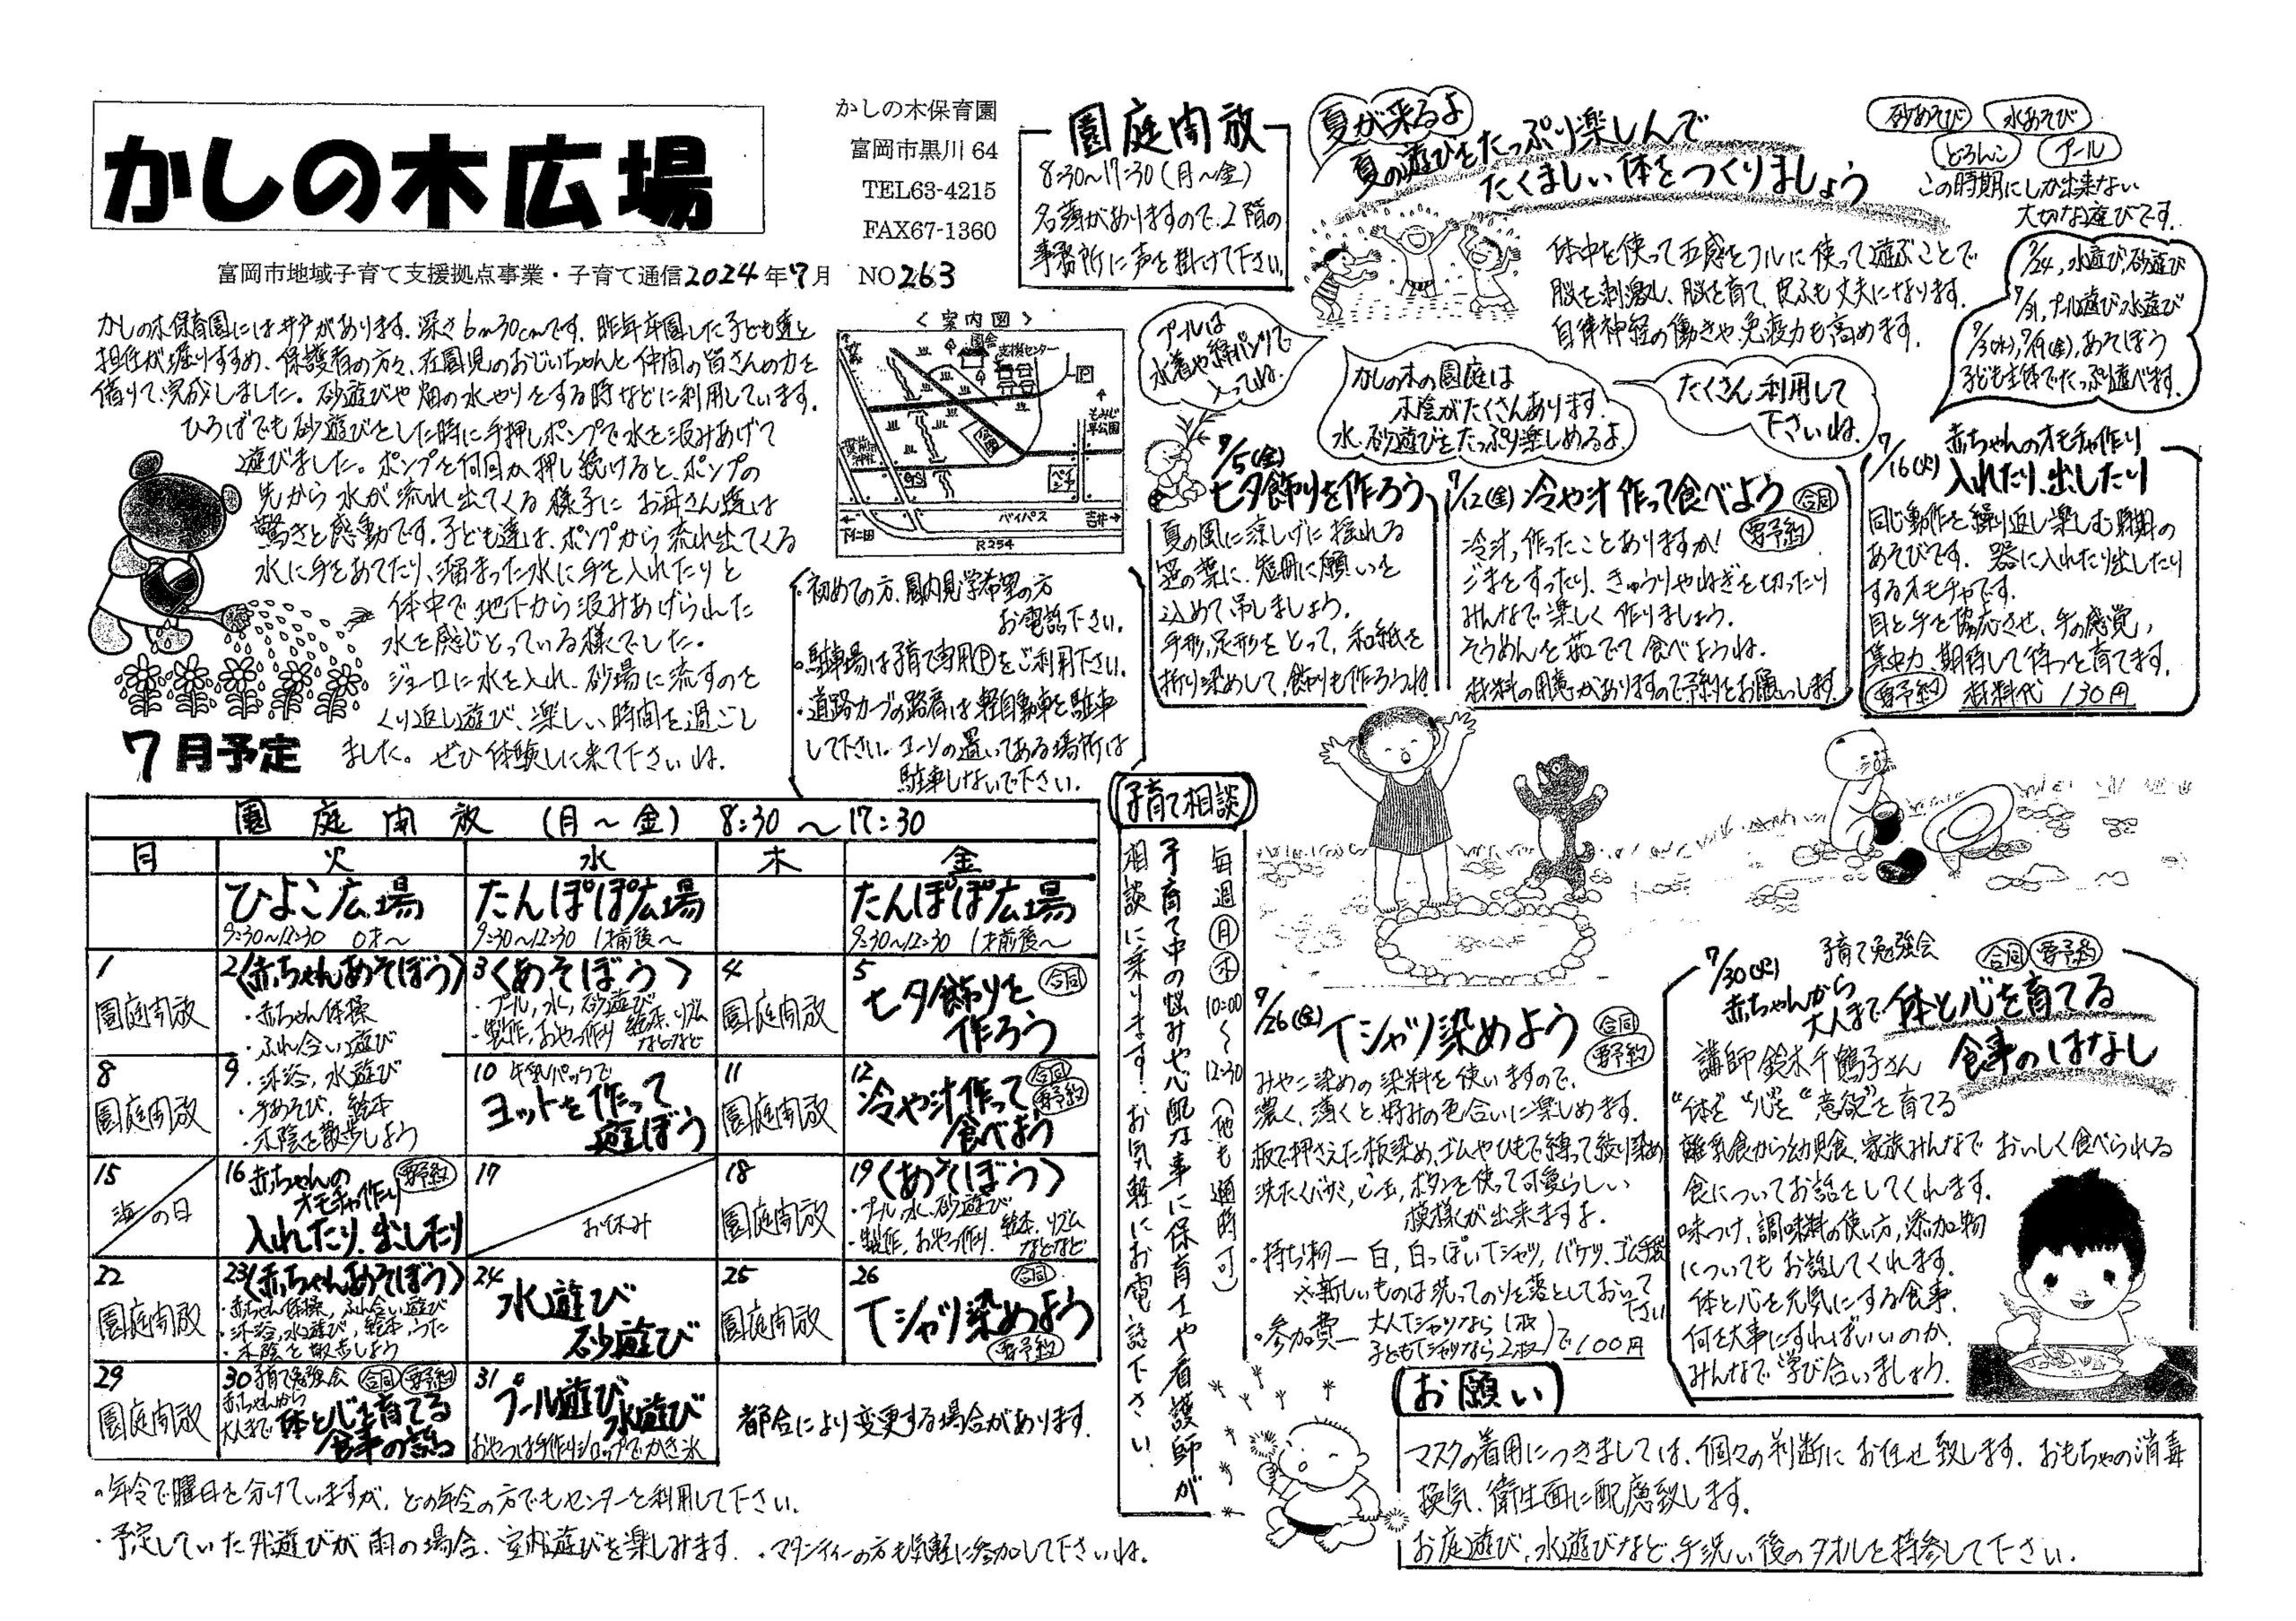 かしの木広場
富岡市地域子育て支援拠点事業・子育て通信2024年7月 NO263
かしの木保育園
富岡市黒川64
TEL63-4215
FAX67-1360
園庭開放
8:30〜17:30(月〜金)
名簿がありますので、2階の
事務所に声を掛けて下さい。
夏が来るよ
夏の遊びをたっぷり楽しんで
たくましい体をつくりましょう
砂あそび 水あそび
どろんこ プール
この時期にしか出来ない
大切な遊びです。
体中を使って五感をフルに使って遊ぶことで
脳を刺激し、脳を育て、皮ふも丈夫になります。
自律神経の働きや免疫力も高めます。
7/24、水遊び、砂遊び
7/31、プール遊び、水遊び
7/3(水)、7/19(金)、あそぼう
子ども主体でたっぷり遊べます。
プールは
水着や綿パンツで
入ってね。
かしの木の園庭は
木陰がたくさんあります。
水、砂遊びをたっぷり楽しめるよ。
たくさん利用して
下さいね。
かしの木保育園には井戸があります。深さ6m30cmです。昨年卒園した子ども達と
担任が掘りすすめ、保護者の方々、在園児のおじいちゃんと仲間の皆さんの力を
借りて、完成しました。砂遊びや畑の水やりをする時などに利用しています。
ひろばでも砂遊びをした時に手押しポンプで水を汲みあげて
遊びました。ポンプを何回か押し続けると、ポンプの
先から水が流れ出てくる様子にお母さん達は
驚きと感動です。子ども達は、ポンプから流れ出てくる
水に手をあてたり、溜まった水に手を入れたりと
体中で地下から汲みあげられた
水を感じとっている様でした。
ジョーロに水を入れ、砂場に流すのを
くり返し遊び、楽しい時間を過ごし
ました。ぜひ体験しに来て下さいね。
<案内図>
支援センター
バイパス
吉井→
下仁田
R254
・初めての方、園内見学希望の方
お電話下さい。
・駐車場は子育て専用Ⓟをご利用下さい。
・道路カーブの路肩は軽自動車を駐車
して下さい。コーンの置いてある場所は
駐車しないで下さい。
7/5(金)
七夕飾りを作ろう
夏の風に涼しげに揺れる
笹の葉に、短冊に願いを
込めて吊しましょう。
手形、足形をとって、和紙を
折り染めして、飾りも作ろうね
7/12(金) 冷や汁作って食べよう 合同
要予約
冷汁、作ったことありますか!
ごまをすったり、きゅうりやねぎを切ったり
みんなで楽しく作りましょう。
そうめんを茹でて食べようね。
材料の用意がありますので予約をお願いします。
7/16(火) 赤ちゃんのオモチャ作り
入れたり、出したり
同じ動作を繰り返し楽しむ時期の
あそびです。器に入れたり出したり
するオモチャです。
目と手を協応させ、手の感覚、
集中力、期待して待つを育てます。
要予約 材料代 130円
7月予定
園庭開放 (月〜金) 8:30〜17:30
月 火 水 木 金
ひよこ広場 たんぽぽ広場 たんぽぽ広場
9:30〜12:30 0才〜 9:30〜12:30 1才前後〜 9:30〜12:30 1才前後〜
1 園庭開放
2 〈赤ちゃんあそぼう〉
・赤ちゃん体操
・ふれ合い遊び
3 〈あそぼう〉
・プール、水、砂遊び
・製作、おやつ作り 絵本、リズム
などなど
4 園庭開放
5 合同
七夕飾りを
作ろう
8 園庭開放
9 ・沐浴、水遊び
・手あそび、絵本
・木陰を散歩しよう
10 牛乳パックで
ヨットを作って
遊ぼう
11 園庭開放
12 合同 要予約
冷や汁作って
食べよう
15 海の日
16 赤ちゃんの 要予約
オモチャ作り
入れたり、出したり
17 お休み
18 園庭開放
19 〈あそぼう〉
・プール、水、砂遊び
・製作、おやつ作り、絵本、リズム
などなど
22 園庭開放
23 〈赤ちゃんあそぼう〉
・赤ちゃん体操、ふれ合い遊び
・沐浴、水遊び、絵本、うた
・木陰を散歩しよう
24 水遊び
砂遊び
25 園庭開放
26 合同
Tシャツ染めよう
要予約
29 園庭開放
30 子育て勉強会 合同 要予約
赤ちゃんから
大人まで 体と心を育てる
食事の話
31 プール遊び
水遊び
おやつは手作りシロップでかき氷
都合により変更する場合があります。
・年令で曜日を分けていますが、どの年令の方でもセンターを利用して下さい。
・予定していた外遊びが雨の場合、室内遊びを楽しみます。・マタニティーの方も気軽に参加して下さいね。
子育て相談
毎週月・水 10:00〜12:30(他も随時可)
子育て中の悩みや心配な事に保育士や看護師が
相談に乗ります!お気軽にお電話下さい。
7/26(金) Tシャツ染めよう 合同
要予約
みやこ染めの染料を使いますので、
濃く、薄くと好みの色合いに楽しめます。
板で押さえた板染め、ゴムやひもで縛って絞り染め
洗たくバサミ、ビー玉、ボタンを使って可愛らしい
模様が出来ますよ。
・持ち物― 白、白っぽいTシャツ、バケツ、ゴム手袋
※新しいものは洗ってのりを落としておいて
下さい
・参加費― 大人Tシャツなら1枚
子どもTシャツなら2枚)で100円
7/30(火) 子育て勉強会 合同 要予約
赤ちゃんから
大人まで 体と心を育てる
食事のはなし
講師 鈴木千鶴子さん
“体を”“心を”“意欲”を育てる
離乳食から幼児食、家族みんなでおいしく食べられる
食についてお話をしてくれます。
味つけ、調味料の使い方、添加物
についてもお話してくれます。
体と心を元気にする食事、
何を大事にすればいいのか、
みんなで学び合いましょう。
お願い
マスクの着用につきましては、個々の判断にお任せ致します。おもちゃの消毒
換気、衛生面に配慮致します。
お庭遊び、水遊びなど、手洗い後のタオルを持参して下さい。